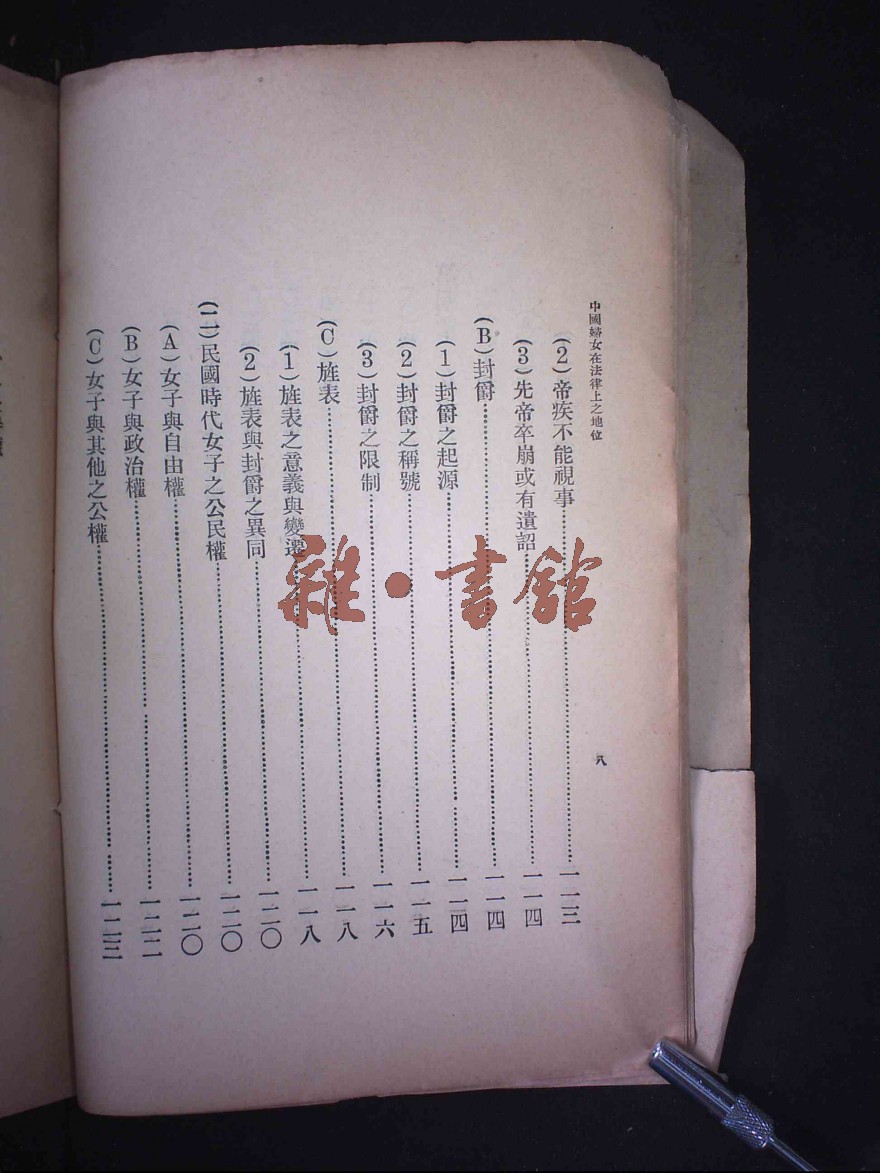 中國婦女在法律上之地位
八
(2)帝疾不能視事……一一三
(3)先帝卒崩或有遺詔……一一四
(B)封爵……一一四
(1)封爵之起源……一一四
(2)封爵之稱號……一一五
(3)封爵之限制……一一六
(C)旌表……一一八
(1)旌表之意義與變遷……一一八
(2)旌表與封爵之異同……一二〇
(二)民國時代女子之公民權……一二〇
(A)女子與自由權……一二〇
(B)女子與政治權……一二二
(C)女子與其他之公權……一二三
雜·書館